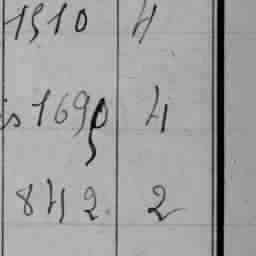 1510 4
is 1690 4
842. 2